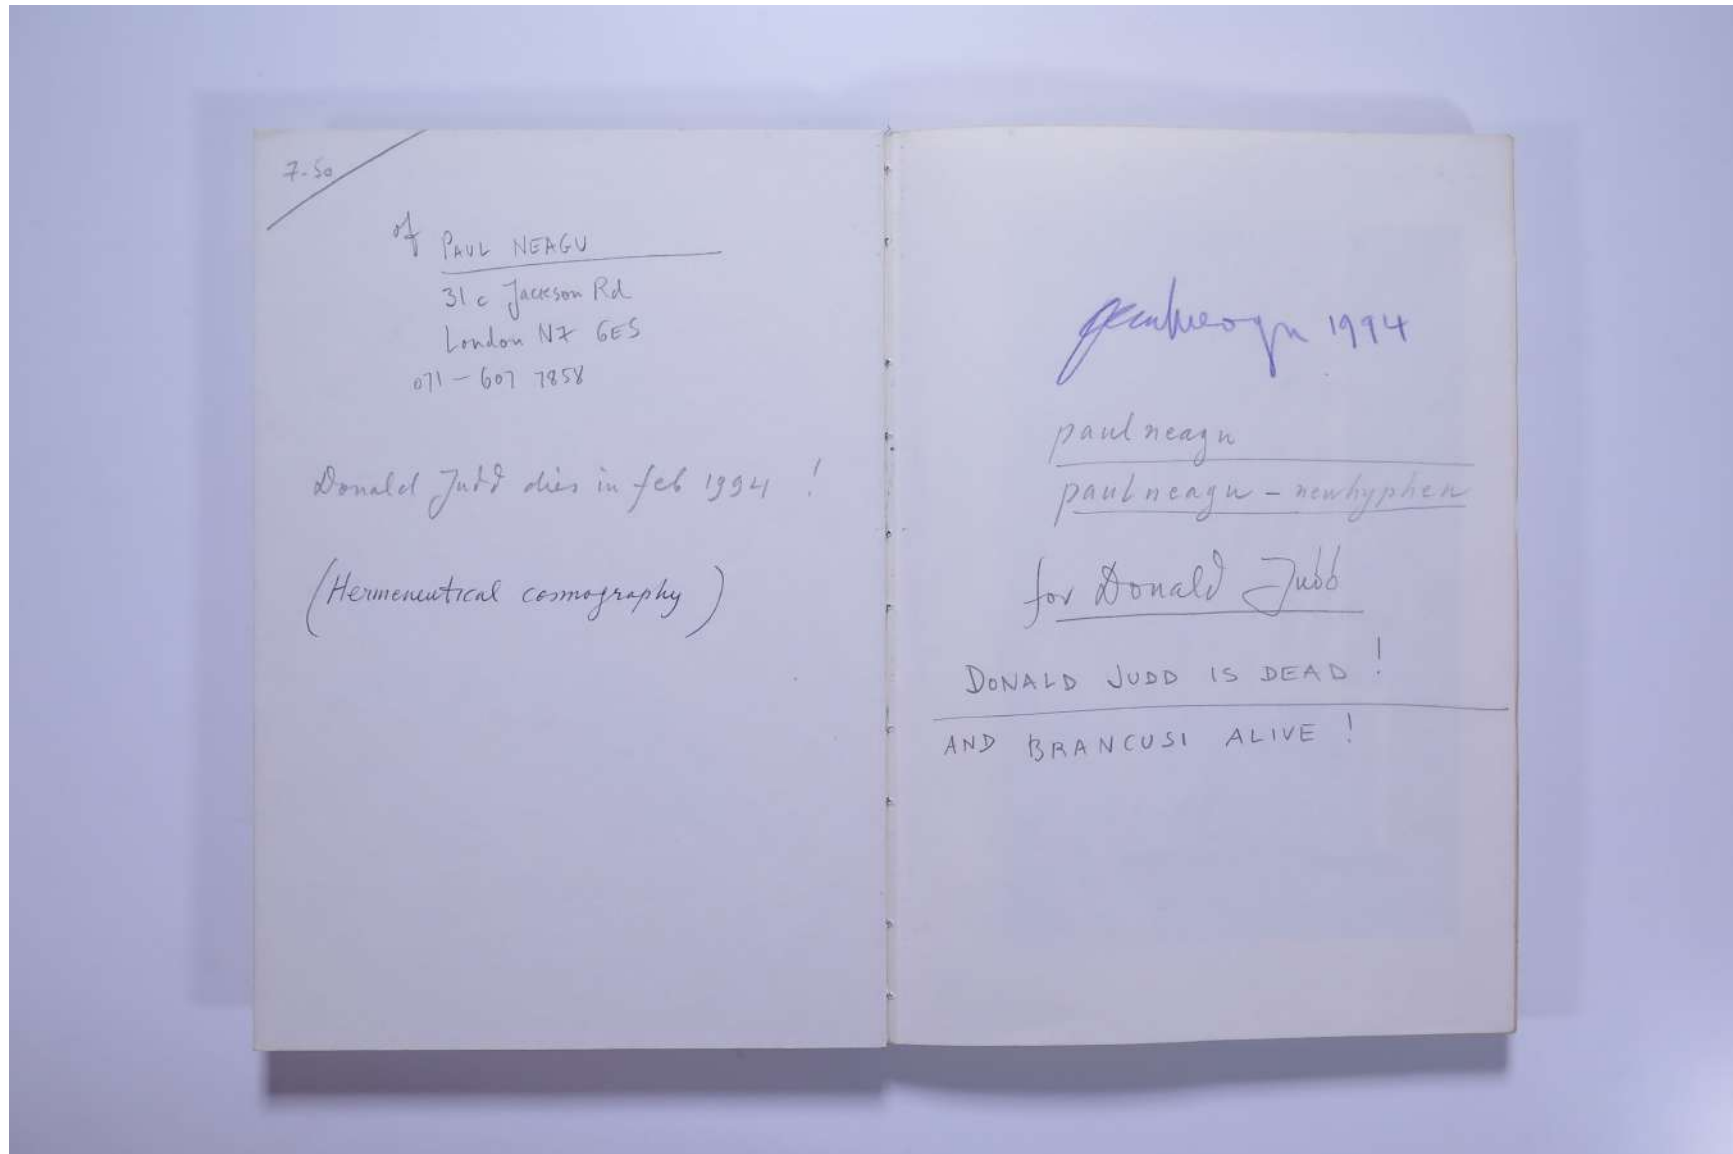 7-50
of PAUL NEAGU
31c Jackson Rd
London N7 6ES
071 - 607 7858
Donald Judd dies in feb 1994 !
(Hermeneutical cosmography)
paulneagu 1994
paul neagu
paul neagu - newhyphen
for Donald Judd
DONALD JUDD IS DEAD !
AND BRANCUSI ALIVE !